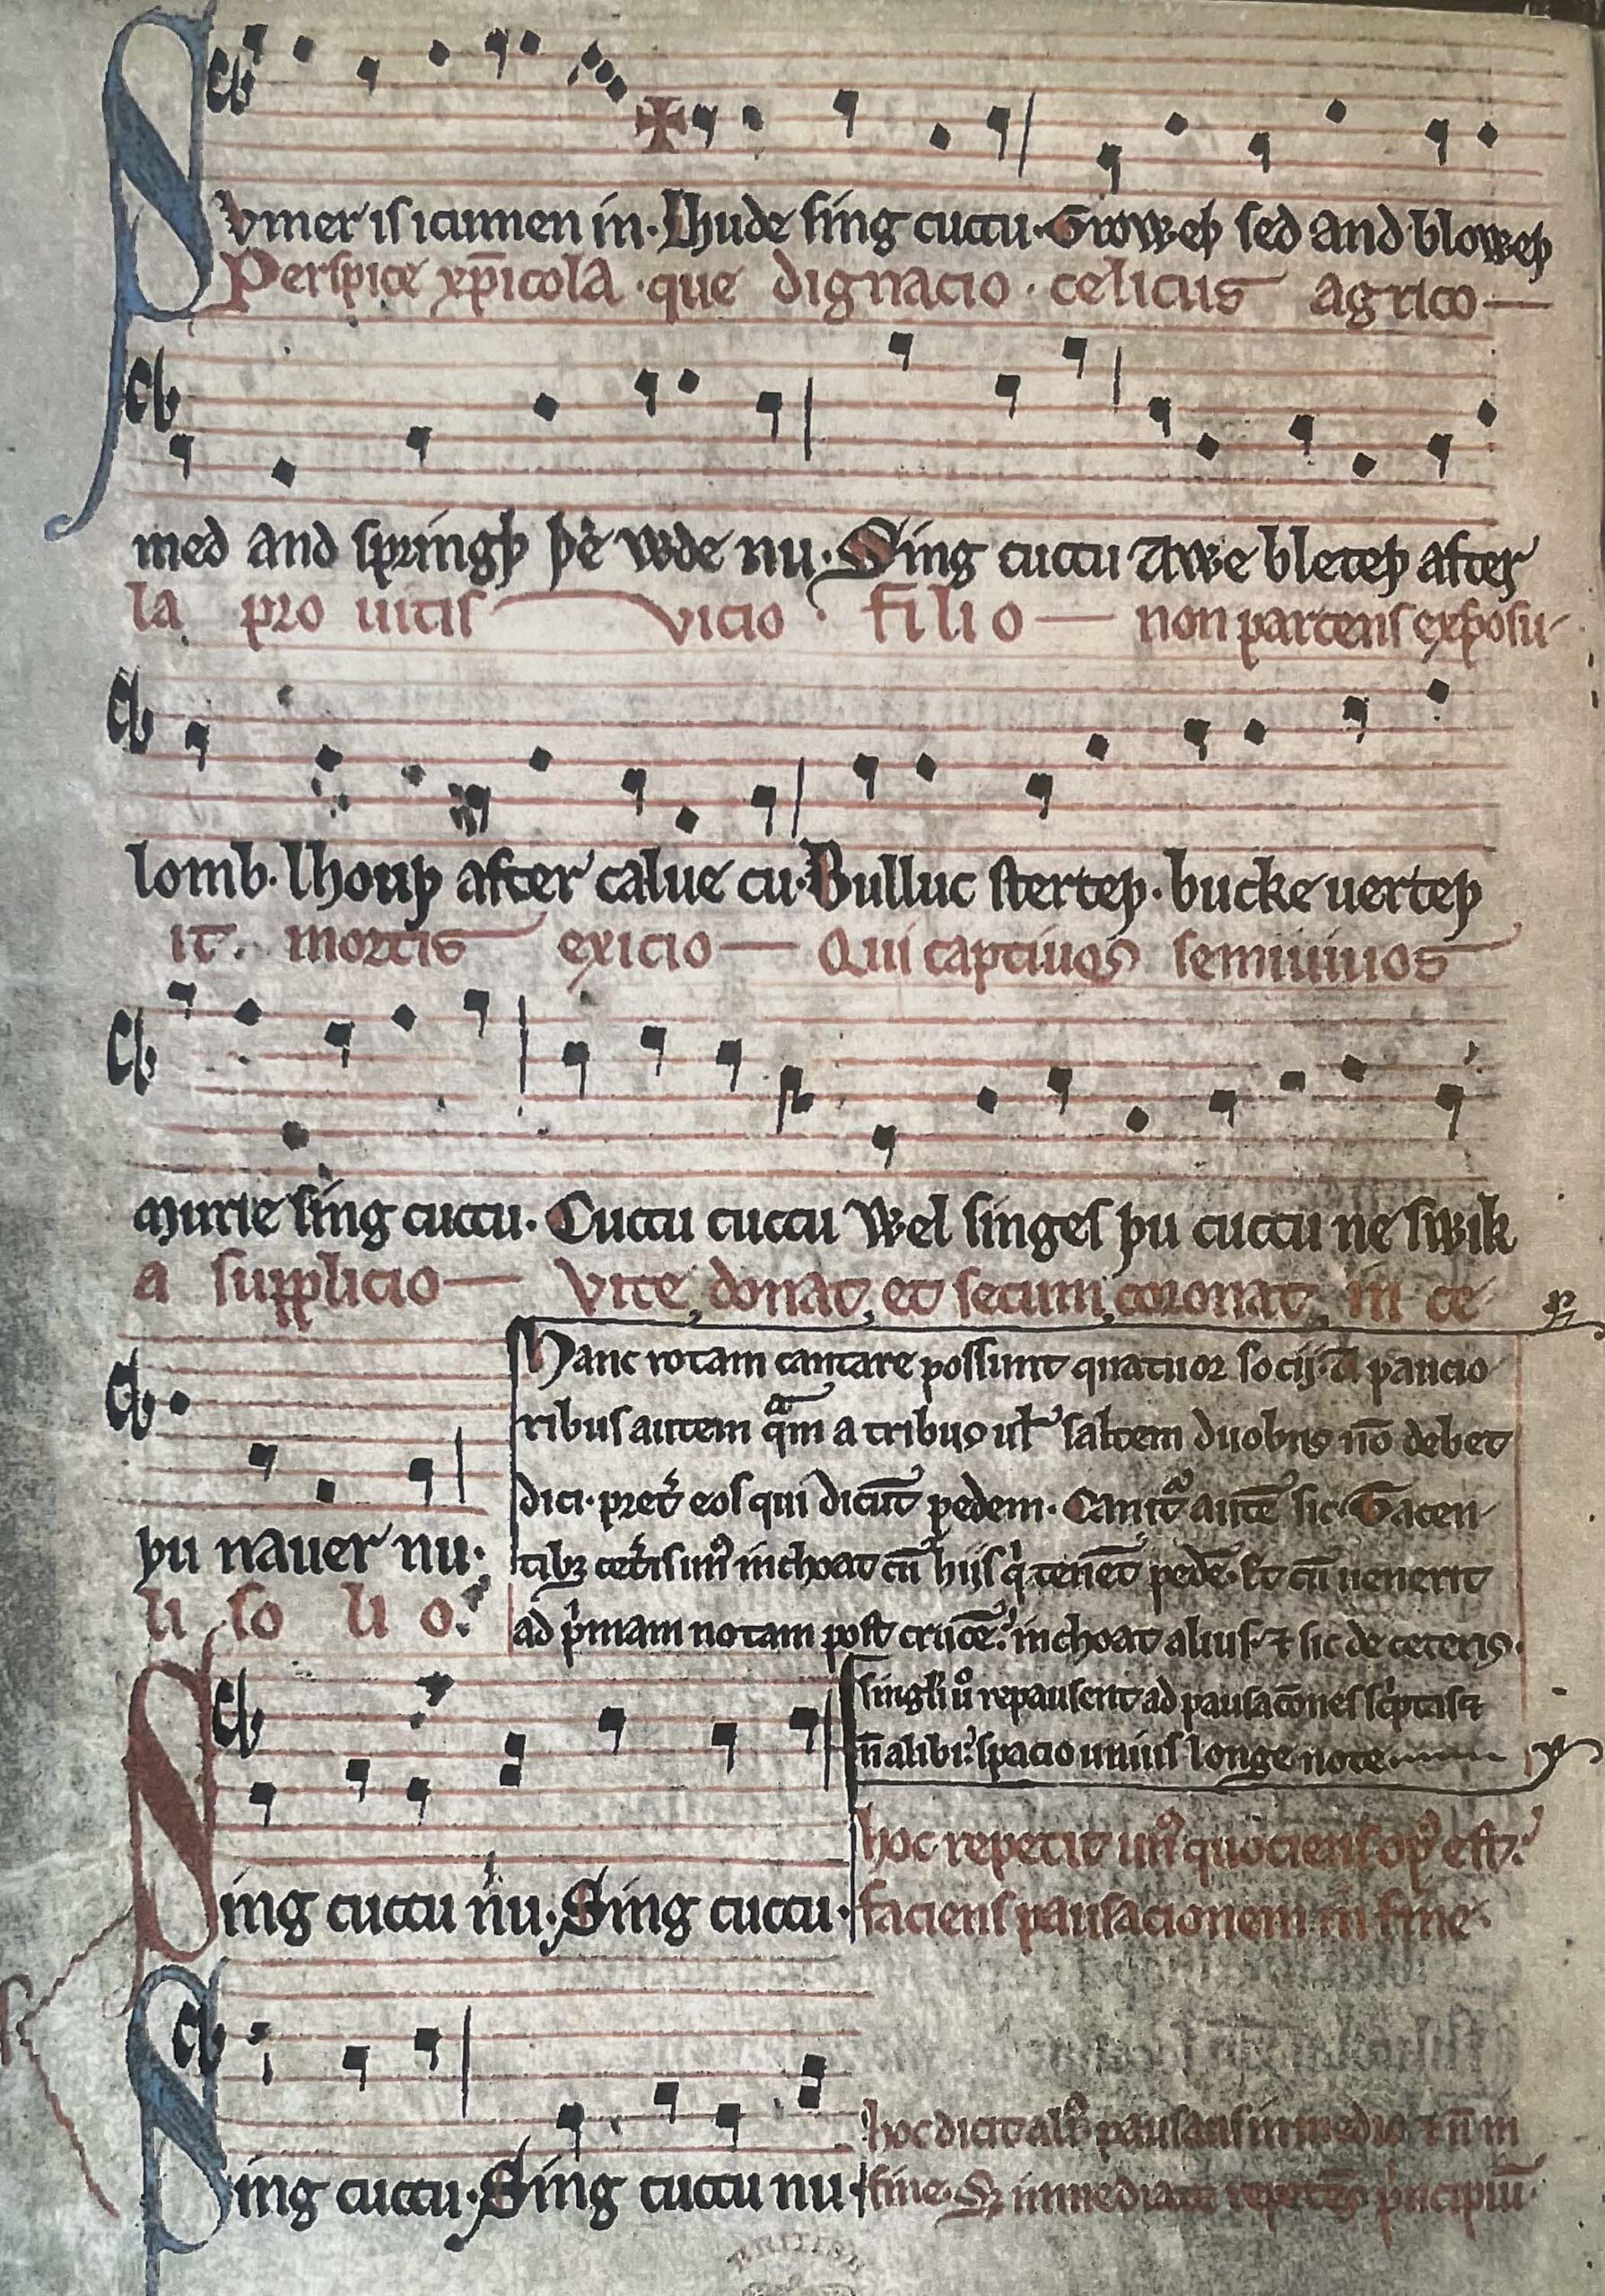 Svmer is icumen in. Lhude sing cuccu. Groweþ sed and bloweþ
Perspice xp̄icola. que dignacio. celicus agrico—
med and springþ þe wde nu. Sing cuccu Awe bleteþ after
la pro uitis vicio. filio— non parcens exposu-
lomb. lhouþ after calue cu. Bulluc sterteþ. bucke uerteþ
it. mortis exicio— Qui captiuos semiuiuos
murie sing cuccu. Cuccu cuccu Wel singes þu cuccu ne swik
a supplicio— Vite donat, et secum coronat, in ce-
þu nauer nu.
li so li o.
Hanc rotam cantare possunt quatuor socij. A paucio-
ribus autem q̄m a tribus ul' saltem duobus nō debet
dici. pret' eos qui dicūt pedem. Canit' autē sic. Tacen-
tibꝫ cet'is un' inchoat cū hijs q' tenēt pedē. Et cū uenerit
ad p'mam notam post crucē. inchoat alius. ⁊ sic de ceteris.
singli ů repausent ad pausacōnes sc'ptas ⁊
n̄ alibi. spacio unius longe note.
Sing cuccu nu. Sing cuccu.
hoc repetit un' quociens op' est.
faciens pausacionem in fine.
Sing cuccu. Sing cuccu nu
hoc dicit ali' pausans in medio ⁊ n̄ in
fine. Sꝫ immediate repetēs p'ncipiū.